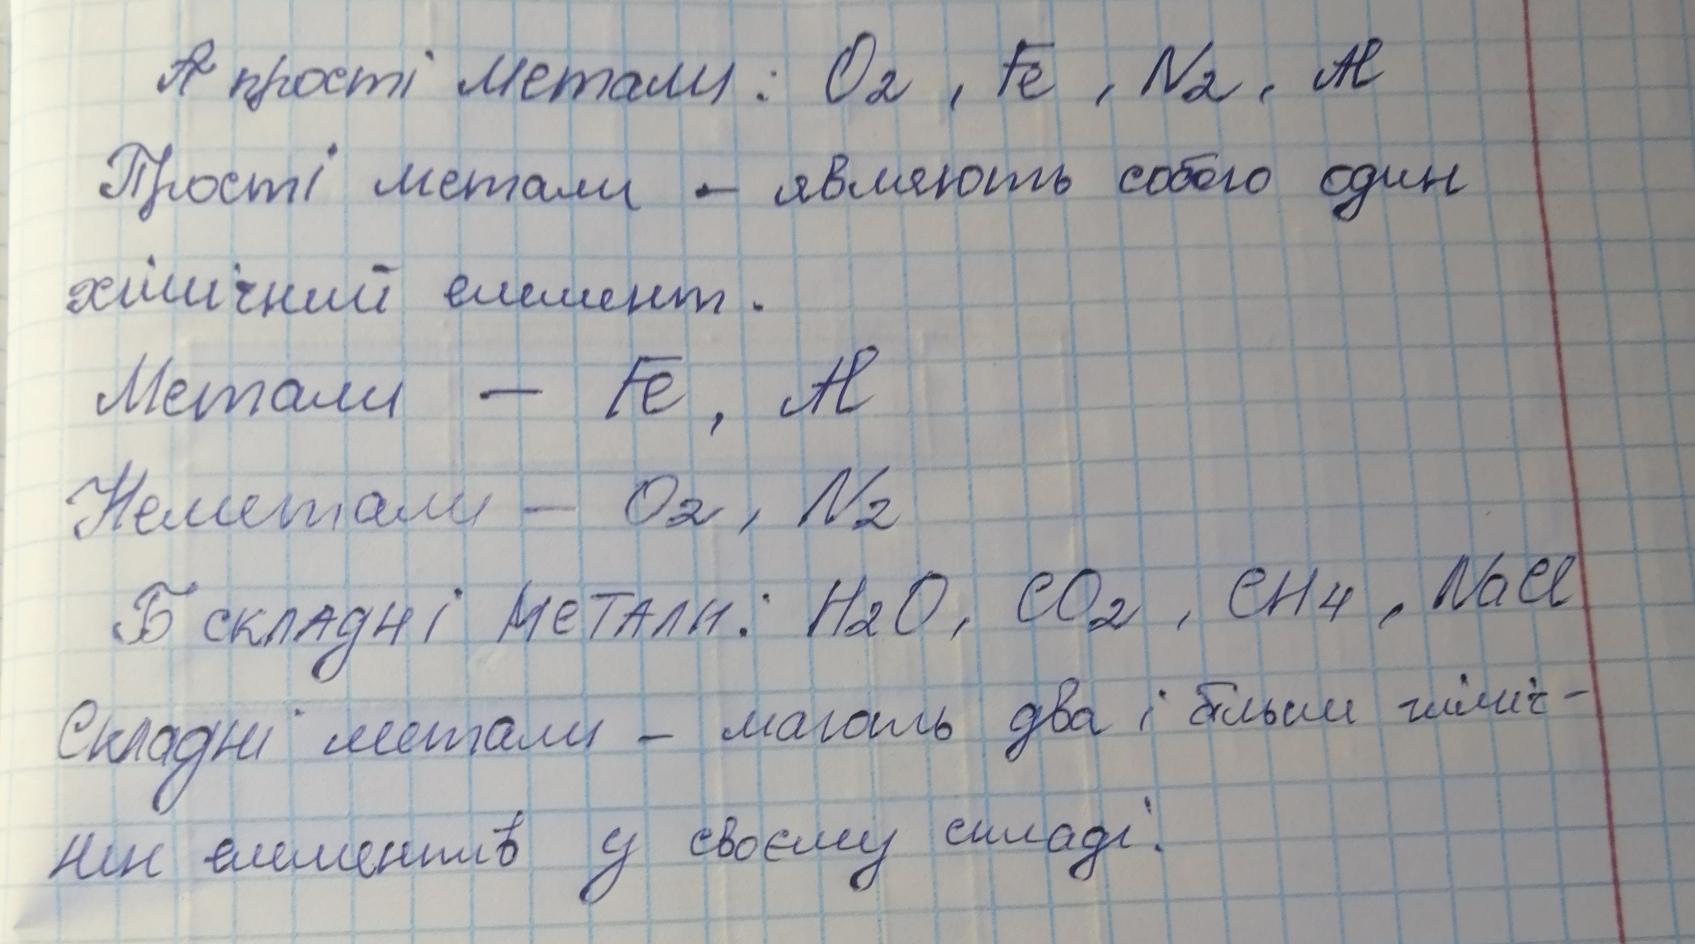 А прості метали: O2, Fe, N2, Al
Прості метали - являють собою один
хімічний елемент.
Метали - Fe, Al
Неметали - O2, N2
Б складні метали: H2O, CO2, CH4, NaCl
Складні метали - мають два і більш хіміч-
них елементів у своєму складі.